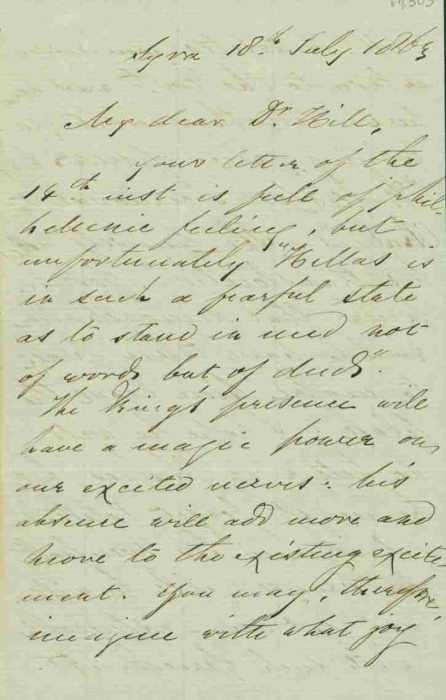 Syra 18th July 1863
My dear Dr Hill,
your letter of the
14th inst is full of phil
hellenic feeling, but
unfortunately "Hellas is
in such a fearful state
as to stand in need not
of words but of deeds".
The King's presence will
have a magic power on
our excited nerves: his
absence will add more and
more to the existing excite-
ment. You may, therefore,
imagine with what joy